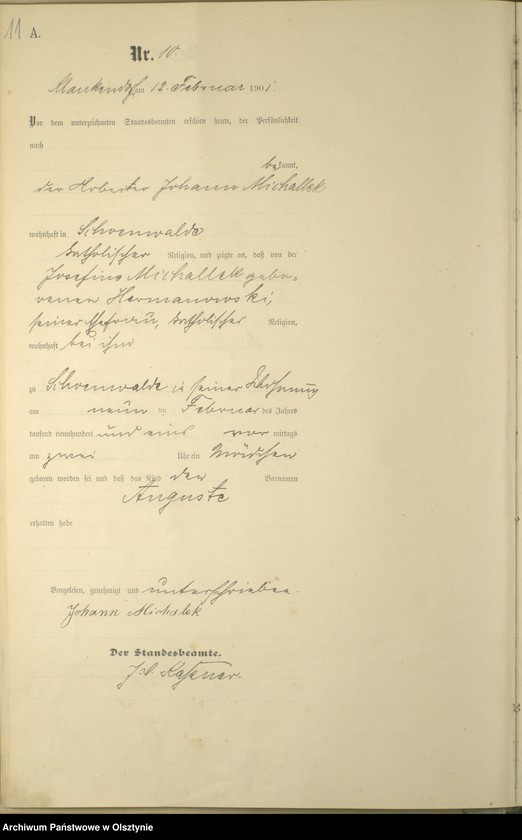 11 A.
Nr. 10.
Klaukendorf am 12. Februar 1901.
Vor dem unterzeichneten Standesbeamten erschien heute, der Persönlichkeit
nach
bekannt,
der Arbeiter Johann Michallek
wohnhaft in Schoenwalde
katholischer Religion, und zeigte an, daß von der
Josefine Michallek gebo-
renen Hermanowski,
seiner Ehefrau, katholischer Religion,
wohnhaft bei ihm
zu Schoenwalde in seiner Wohnung
am neun ten Februar des Jahres
tausend neunhundert und eins vor mittags
um zwei Uhr ein Mädchen
geboren worden sei und daß das Kind den Vornamen
Auguste
erhalten habe
Vorgelesen, genehmigt und unterschrieben.
Johann Michalek
Der Standesbeamte.
Archiwum Państwowe w Olsztynie